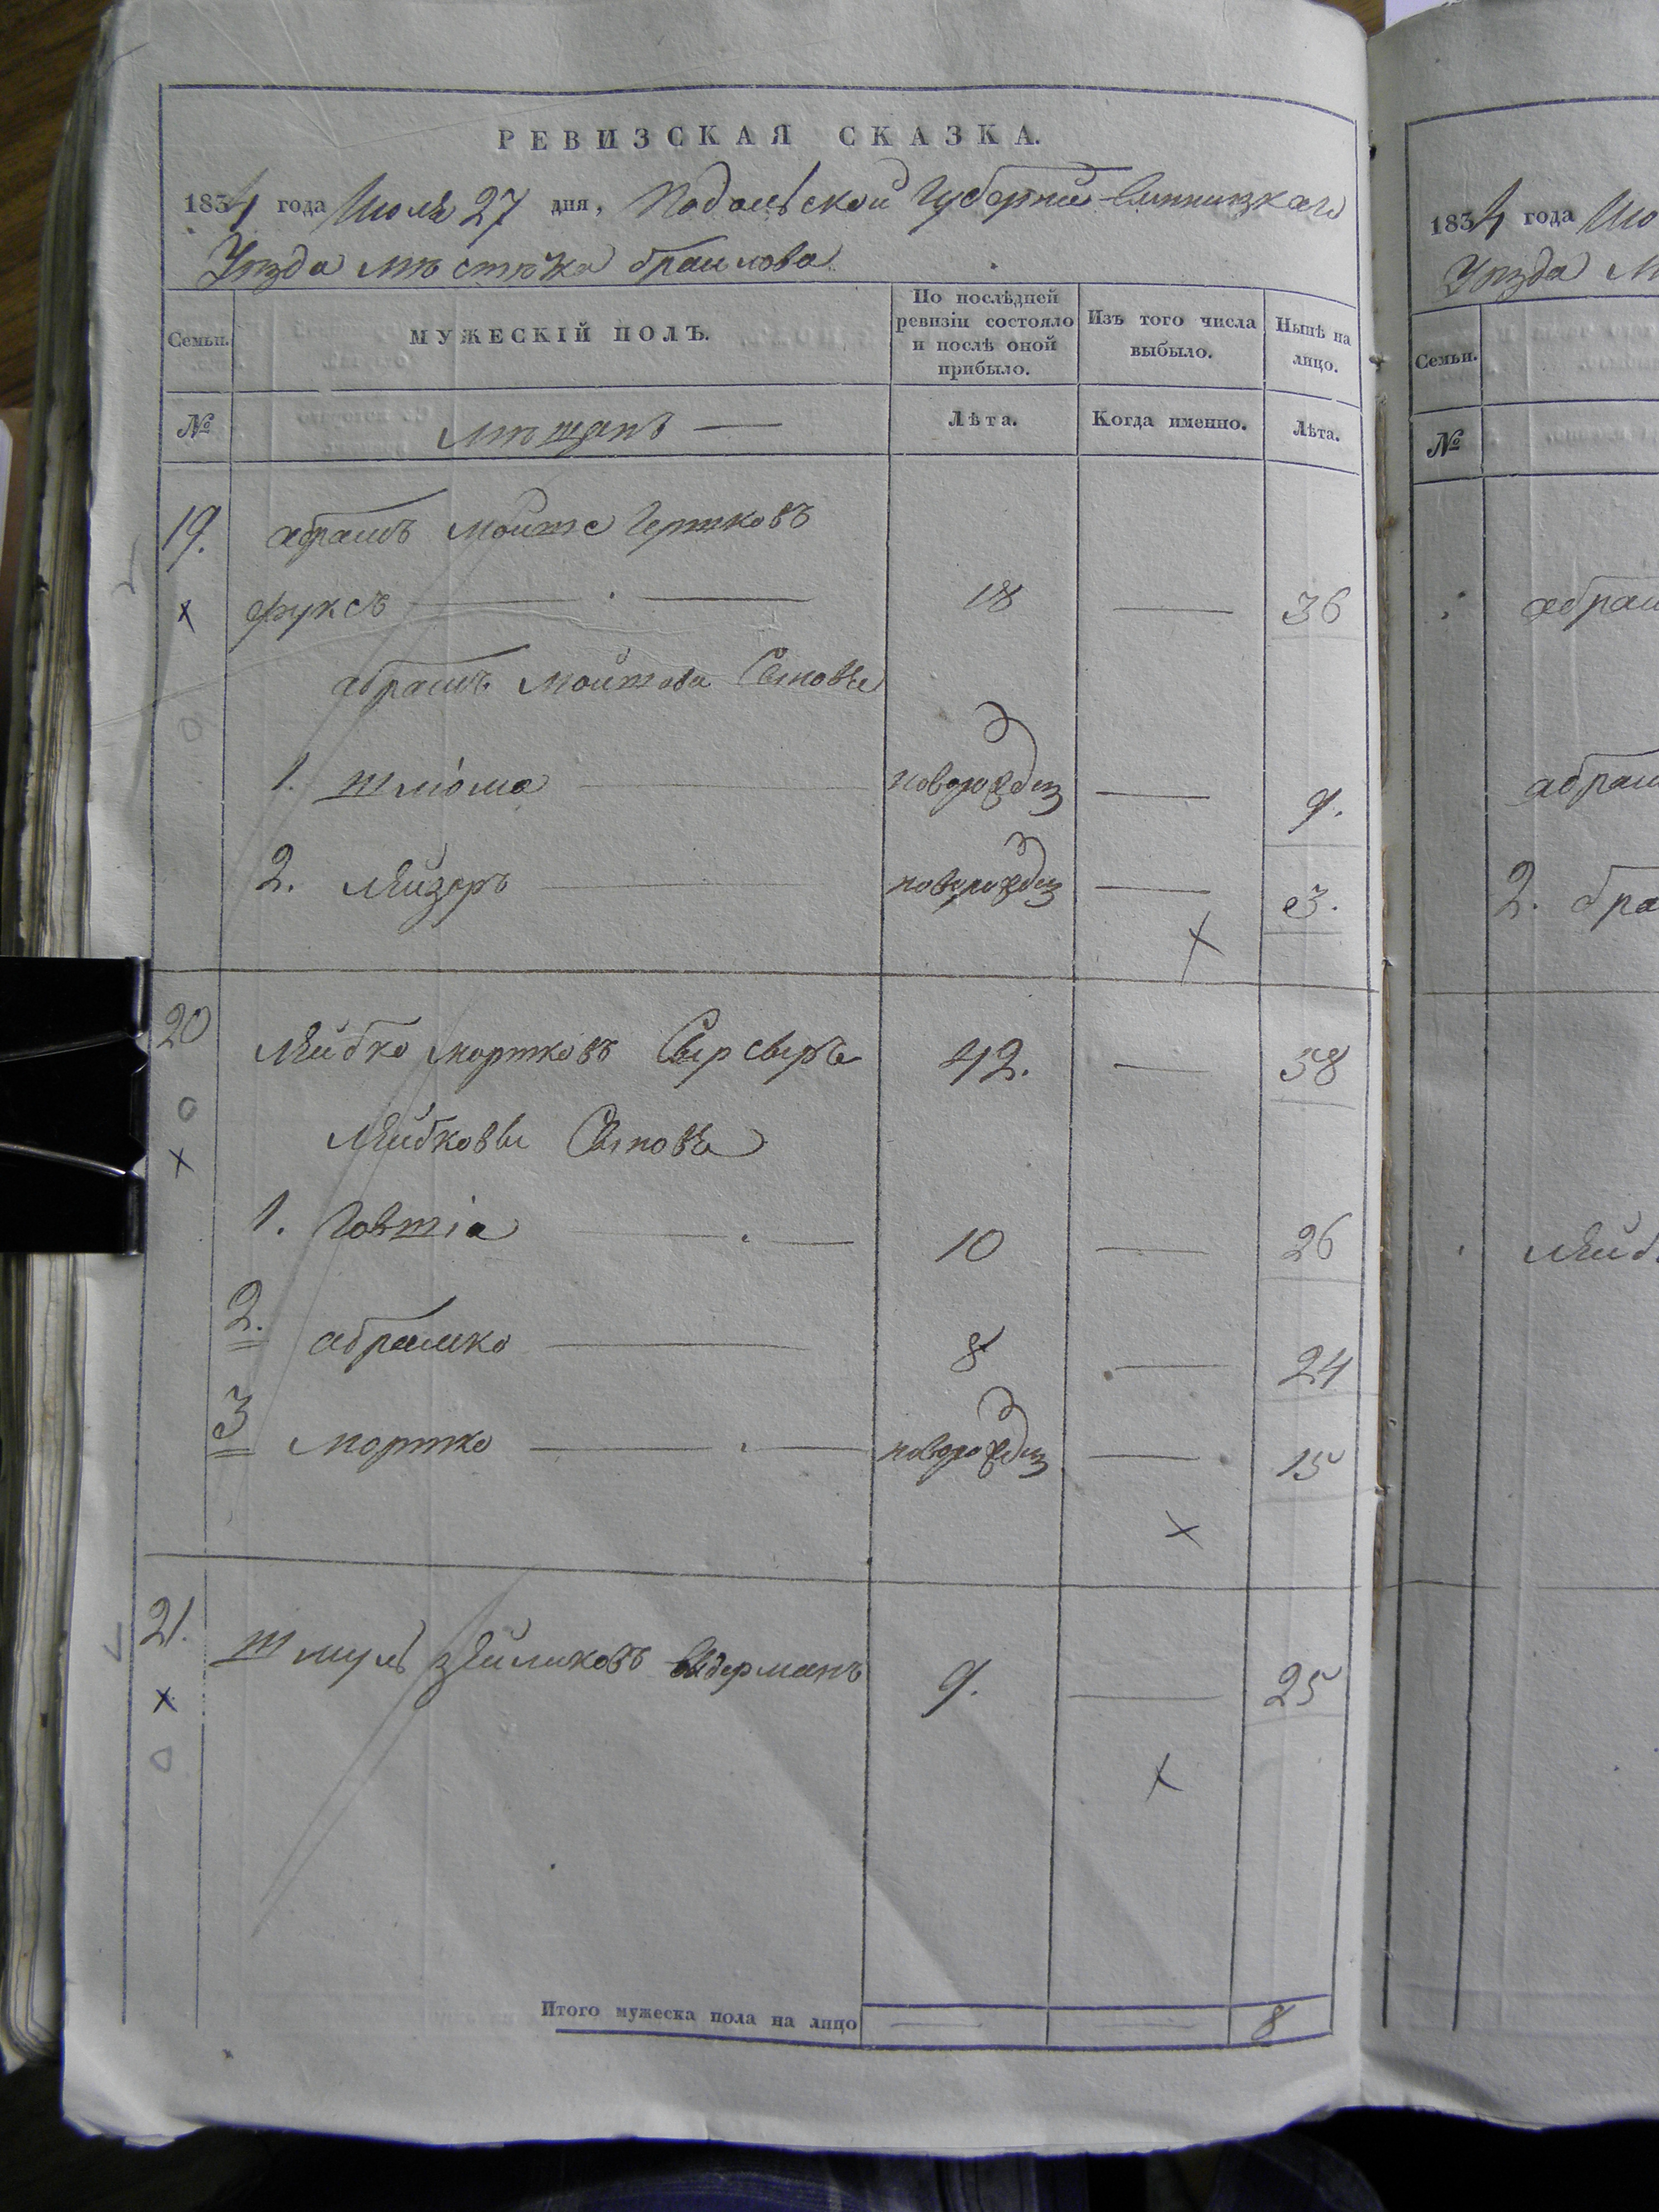 РЕВИЗСКАЯ СКАЗКА.
1834 года Июля 27 дня, Подольской Губернии Винницкаго
Уѣзда мѣстечка браилова
Семьи.
МУЖЕСКІЙ ПОЛЪ.
По послѣдней ревизіи состояло и послѣ оной прибыло.
Изъ того числа выбыло.
Нынѣ на лицо.
№
мѣщанъ
Лѣта.
Когда именно.
Лѣта.
19. абрамъ мошко Гершковъ
фуксъ 18 36
абрамъ мошкова Сыновья
1. шлiома новорожден 9.
2. лейзоръ новорожден 3.
20 лейбко мортковъ Сырсыръ 42. 58
лейбковы Сыновья
1. Говшіа 10 26
2. абрамко 8 24
3 мортко новорожден 15
21. шмуль зейликовъ видерманъ 9. 25
Итого мужеска пола на лицо 8
1834 года Ию
Уѣзда м
Семьи.
№
абрам
абрам
2. бра
лейб